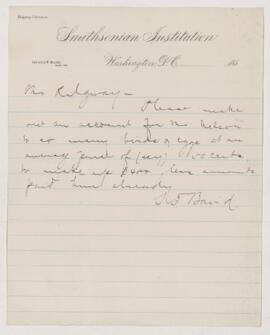 Smithsonian Institution
Washington, D.C. 188
Mr Ridgway –
Please make
out an account for Mr Nelson
to so many birds & eggs at an
average price of (say) 50 cents
to make up $400, less amounts
paid him already
S F Baird